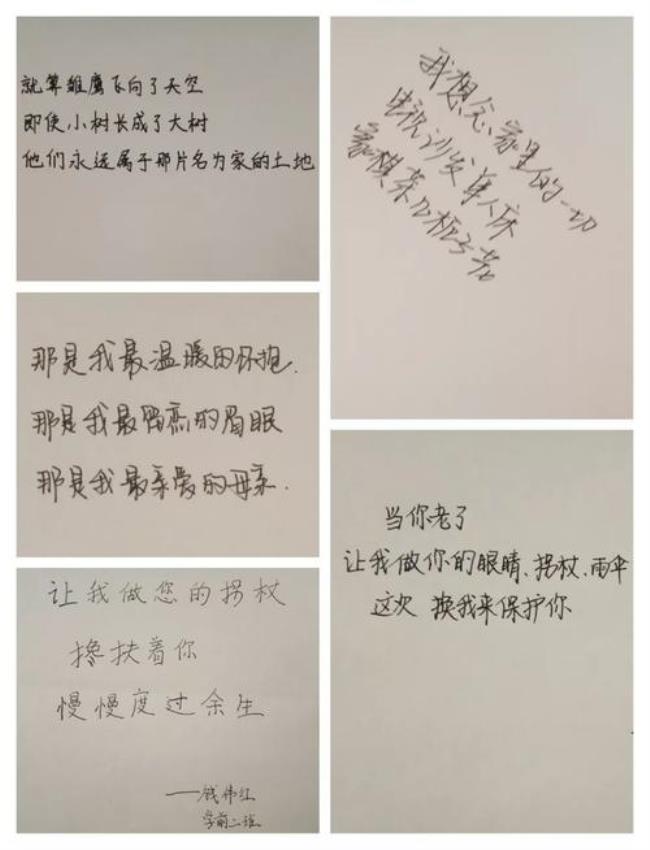 就算雏鹰飞向了天空
即使小树长成了大树
他们永远属于那片名为家的土地
我想念家里的一切
电视沙发单人床
象棋茶几栀子花
那是我最温暖的怀抱.
那是我最留恋的眉眼
那是我最亲爱的母亲.
当你老了
让我做你的眼睛、拐杖、雨伞
这次 换我来保护你
让我做您的拐杖
搀扶着你
慢慢度过余生
——钱伟红
学前二班